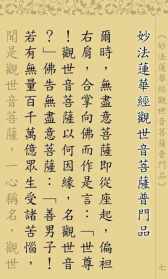 《妙法蓮華經觀世音菩薩普門品》 七
妙法蓮華經觀世音菩薩普門品
爾時，無盡意菩薩即從座起，偏袒
右肩，合掌向佛而作是言：「世尊
！觀世音菩薩以何因緣，名觀世音
？」佛告無盡意菩薩：「善男子！
若有無量百千萬億眾生受諸苦惱，
聞是觀世音菩薩，一心稱名，觀世